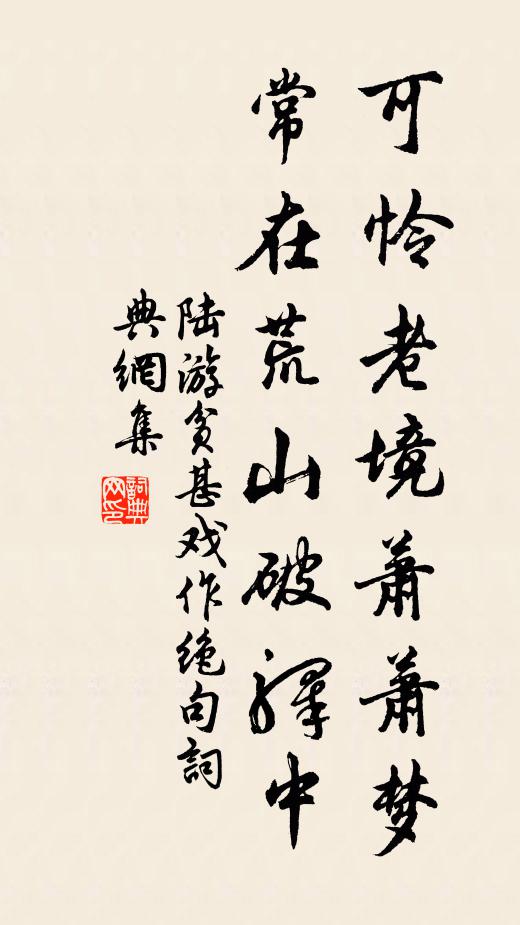 可怜老境萧萧梦
常在荒山破驿中
陆游贫甚戏作绝句词
典網集
詞典网印